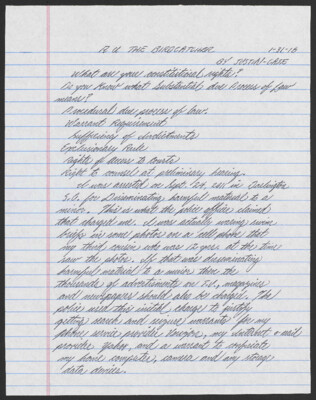 R U THE BIRDCATCHER 1-31-18
BY JUSTIN-CASE
What are your constitutional rights?
Do you know what Substantial due Process of Law
means?
Procedural due process of law.
Warrant Requirement
Sufficiency of indictments
Exclusionary Rule
rights of access to courts
Right to counsel at preliminary hearing.
I was arrested on Sept. 24, in Darlington
S.C. for Disseminating harmful material to a
minor. This is what the police officers claimed
that charged me. I was actually wearing swim
briefs in some photos on a cell phone that
my third cousin who was 12 years at the time
saw the photos. If that was disseminating
harmful material to a minor then the
thousands of advertisements on T.V., magazines
and newspapers should also be charged. The
police used this initial charge to justify
getting search and seizure warrants for my
phone service provider Verizon, my internet e-mail
provider Yahoo, and a warrant to confiscate
my home computer, camera and any storage
data devices.